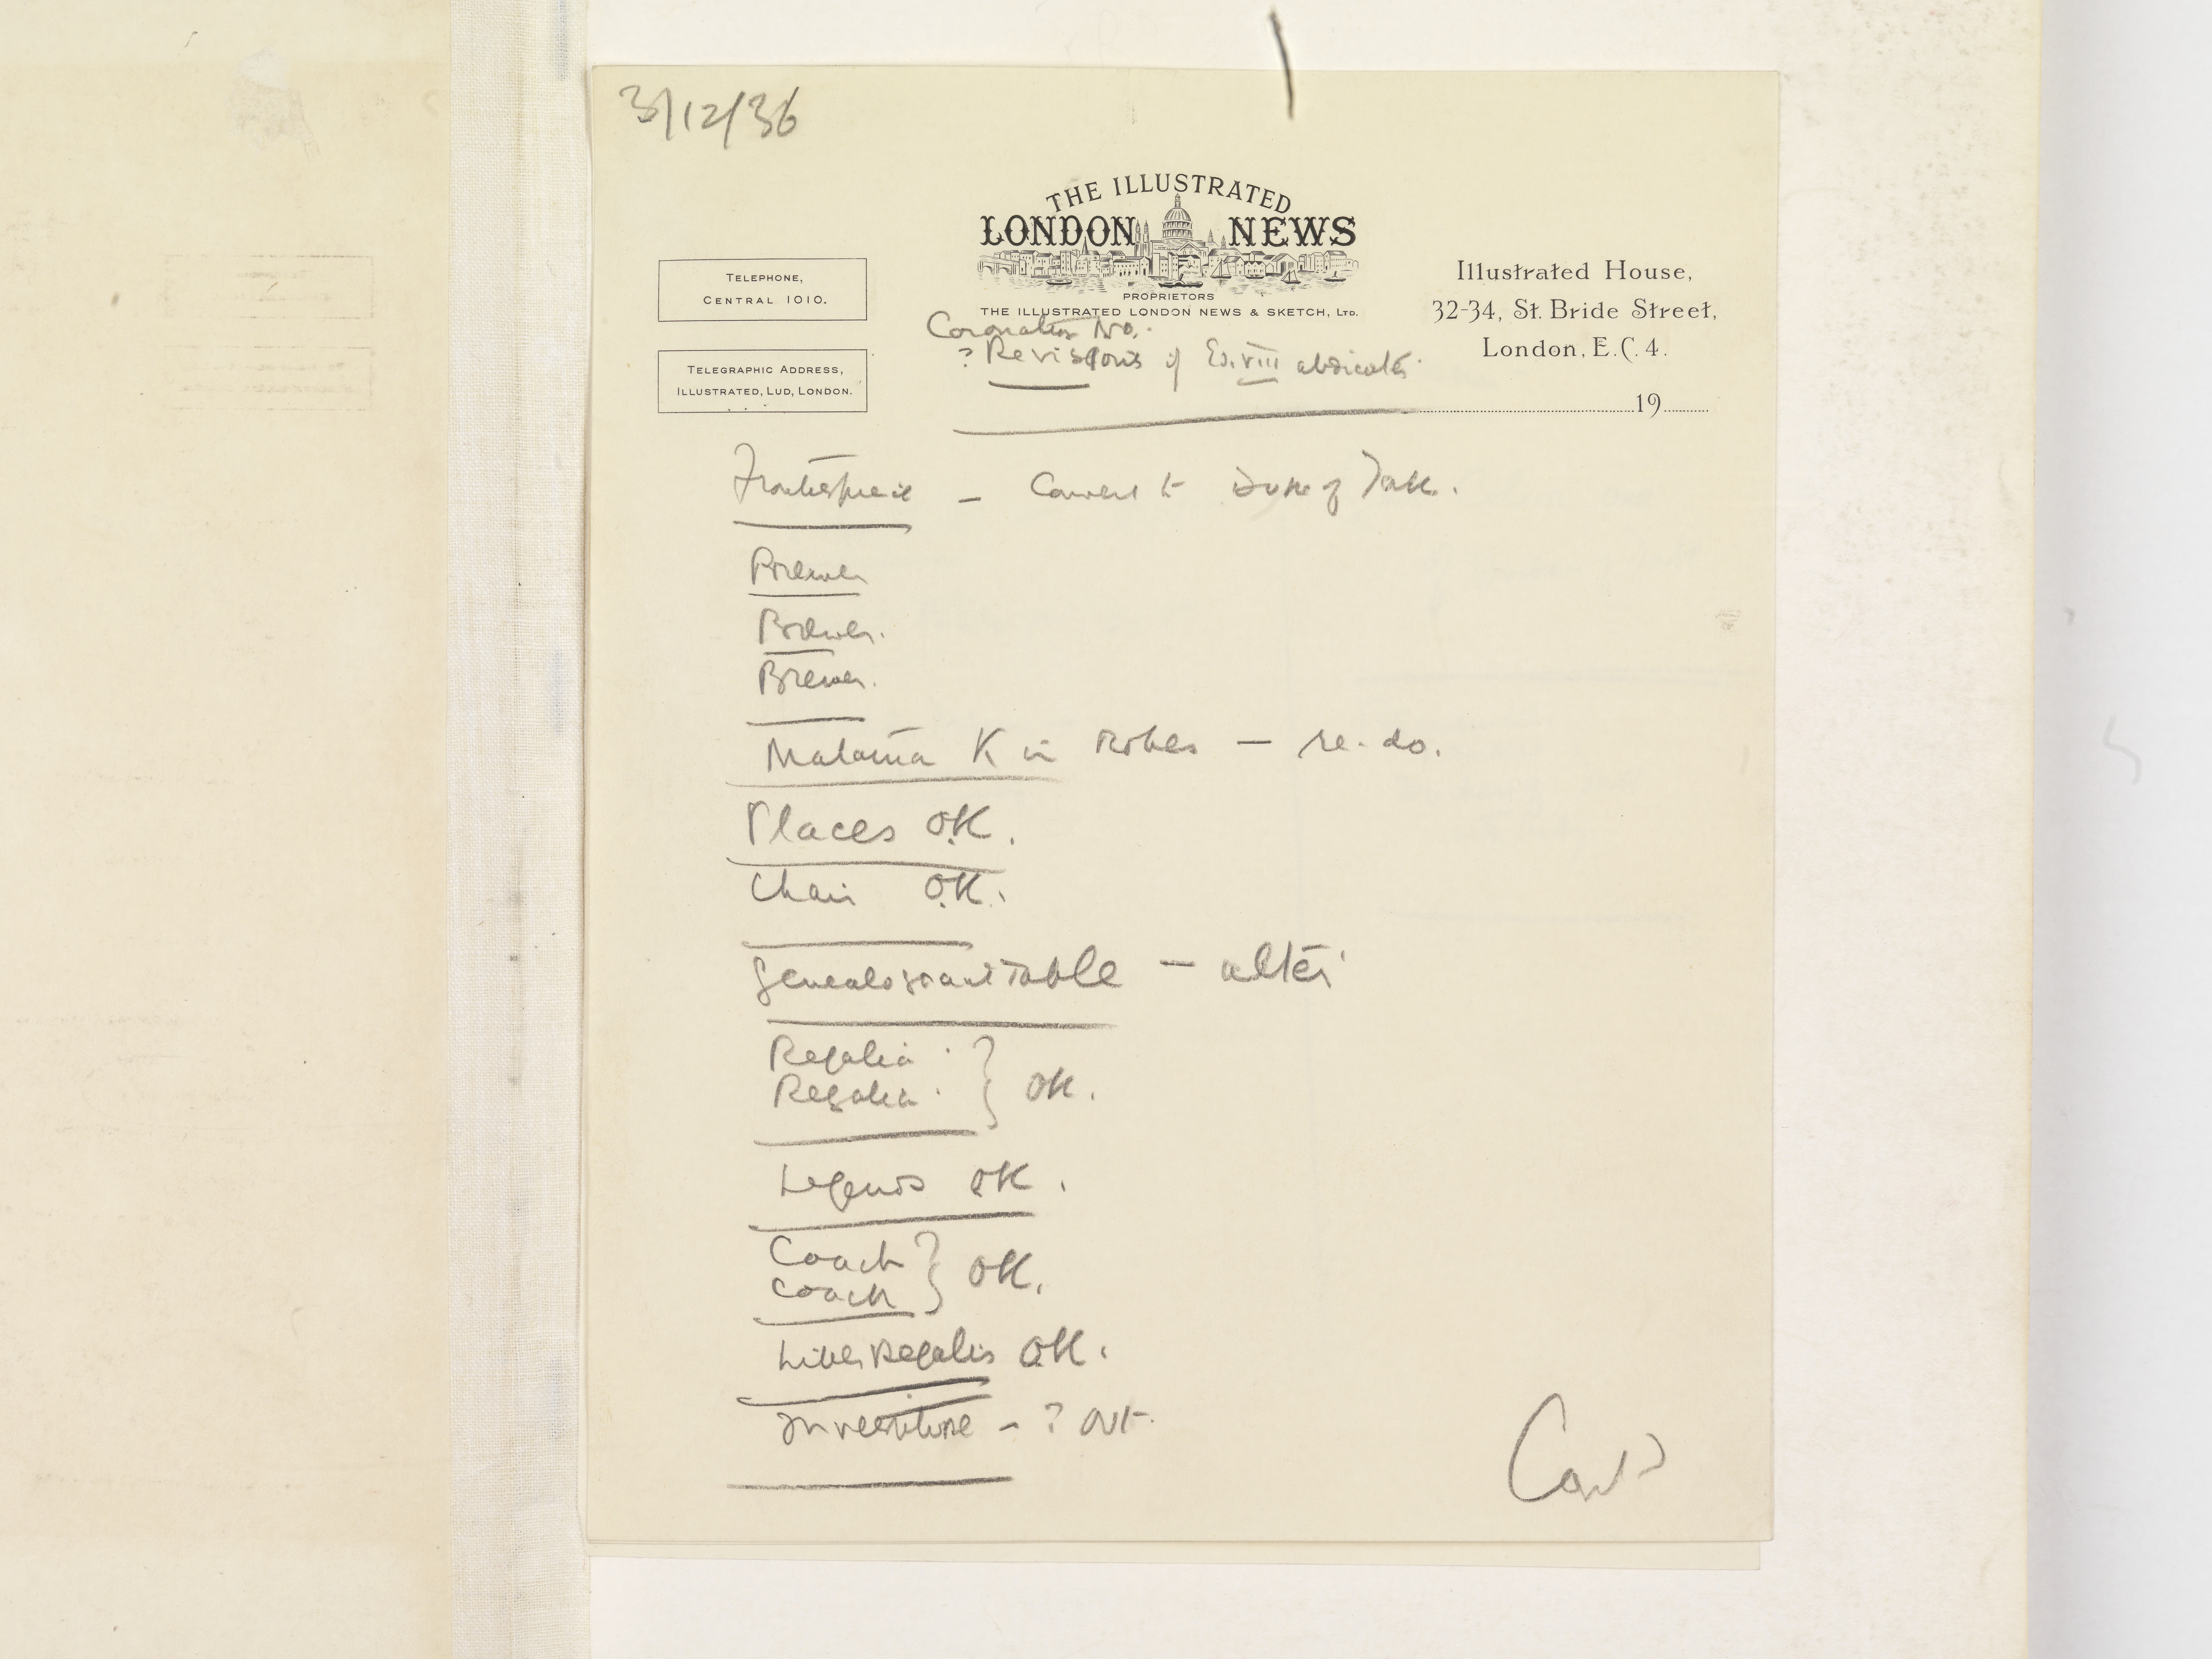 3/12/36
THE ILLUSTRATED
LONDON NEWS
PROPRIETORS
THE ILLUSTRATED LONDON NEWS & SKETCH, LTD.
TELEPHONE,
CENTRAL 1010.
TELEGRAPHIC ADDRESS,
ILLUSTRATED, LUD, LONDON.
Illustrated House,
32-34, St. Bride Street,
London, E.C.4.
19
Coronation No.
? Revisions if Ed. VIII abdicates.
Frontispiece – Convert to Duke of York.
Brewer
Brewer.
Brewer.
Matania K in Robes – re-do.
Places O.K.
Chair O.K.
Genealogical Table – alter
Regalia
Regalia } OK.
Legends OK.
Coach
Coach } OK.
Liber Regalis OK.
Investiture – ? out.